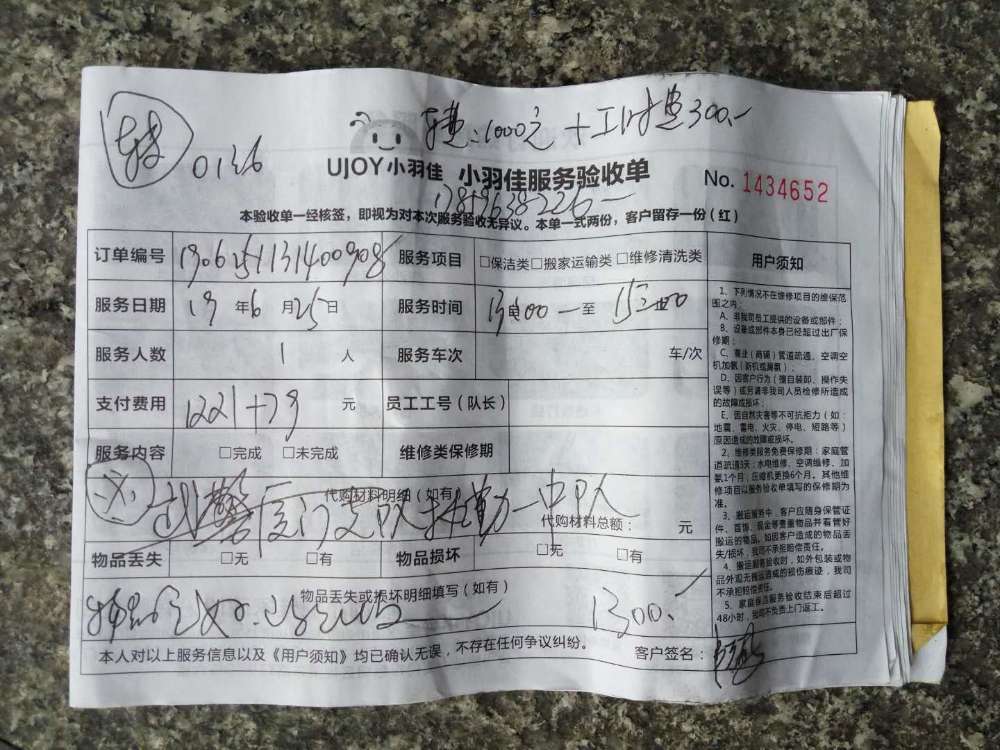 0136
车费:1000元 + 工时费300.-
UJOY小羽佳 小羽佳服务验收单 No. 1434652
本验收单一经核签,即视为对本次服务验收无异议。本单一式两份,客户留存一份(红)
订单编号 服务项目 □保洁类□搬家运输类□维修清洗类
服务日期 19 年 6 月 25 日 服务时间 至
服务人数 1 人 服务车次 车/次
支付费用 1221+79 元 员工工号(队长)
服务内容 □完成 □未完成 维修类保修期
代购材料明细(如有)
武警厦门支队执勤一中队
代购材料总额: 元
物品丢失 □无 □有 物品损坏 □无 □有
物品丢失或损坏明细填写(如有)
1300.-
本人对以上服务信息以及《用户须知》均已确认无误,不存在任何争议纠纷。 客户签名:
用户须知
1、下列情况不在维修项目的维保范
围之内:
A、非我司员工提供的设备或部件;
B、设备或部件本身已经超过出厂保
修期;
C、商业(商铺)管道疏通、空调空
机加氨(新机或漏氨);
D、因客户行为(擅自装卸、操作失
误等)或另请非我司人员检修所造成
的故障或损坏;
E、因自然灾害等不可抗拒力(如:
地震、雷电、火灾、停电、短路等)
原因造成的故障或损坏。
2、维修类服务免费保修期:家庭管
道疏通3天;水电维修、空调维修、加
氨1个月;压缩机更换6个月。其他维
修项目以服务验收单填写的保修期为
准。
3、搬运服务中,客户应随身保管证
件、首饰、现金等贵重物品并看管好
搬运的物品。如因客户造成的物品丢
失/损坏,我司不承担赔偿责任。
4、搬运服务验收时,如外包装或物
品外观无搬运造成的损伤痕迹,我司
不承担赔偿责任。
5、家庭保洁服务验收结束后超过
48小时,我司不负责上门返工。